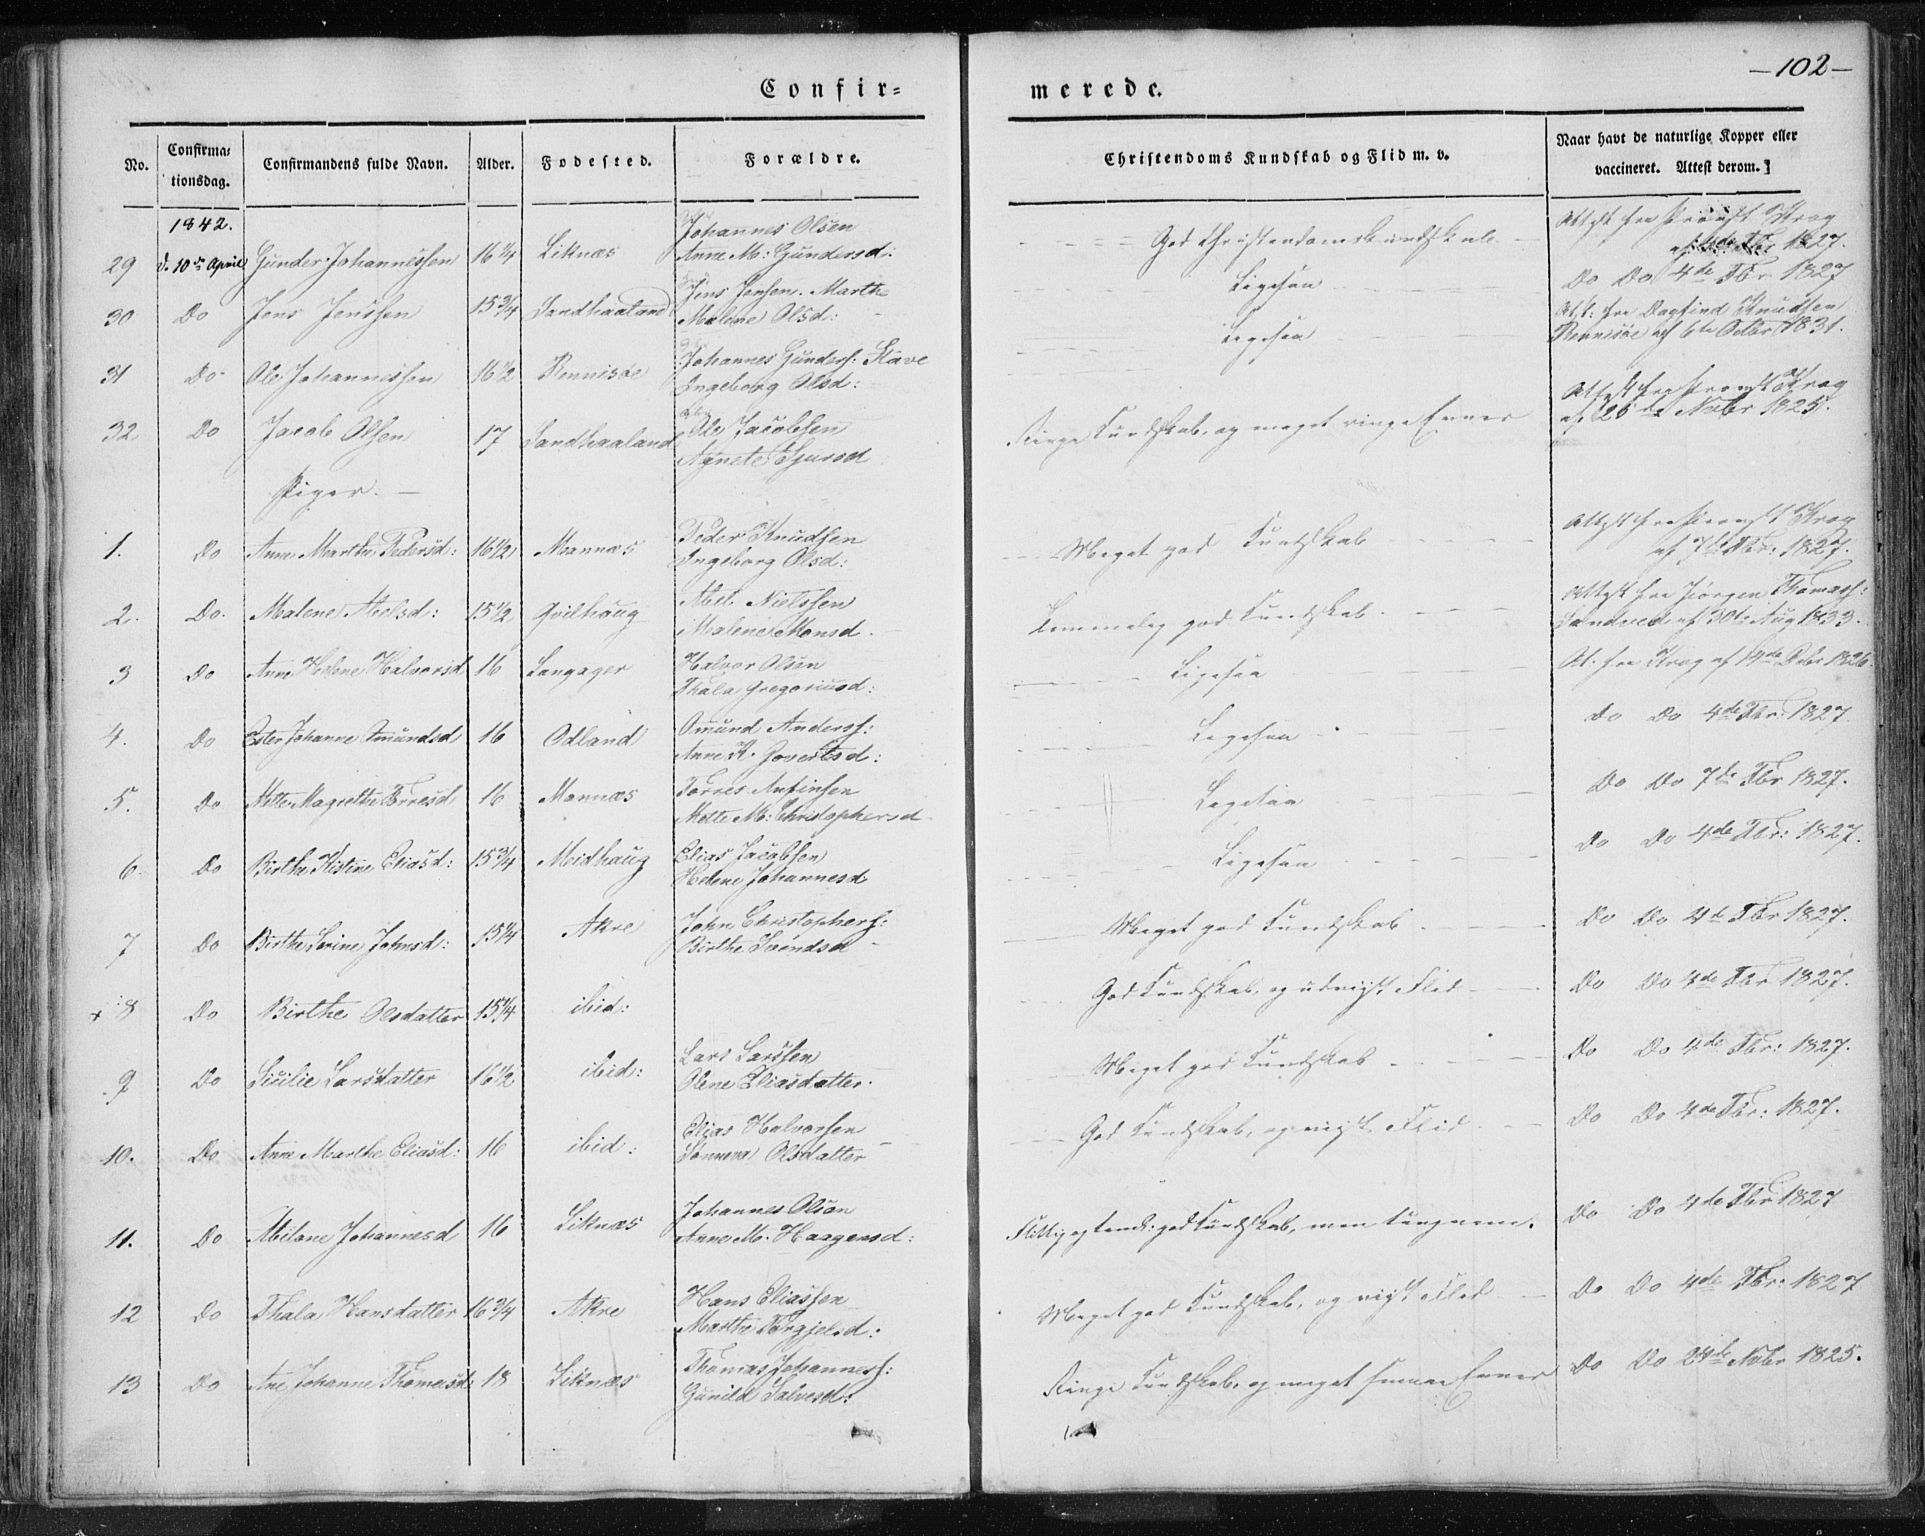 —102—
Confir=
merede.
No.
Confirma=
tionsdag.
Confirmandens fulde Navn.
Alder.
Fodested.
Forældre.
Christendoms Kundskab og Flid m. v.
Naar havt de naturlige Kopper eller
vaccineret. Attest derom.
1842.
29 d. 10de April Gunder Johannessen 16 1/4 Liknæs Johannes Olsen
Anne M: Gundersd:
God Christendomskundskab
Attest fra Provst Krag
1827.
30 Do Jens Jenssen 15 3/4 Sandhaaland Jens Jensen. Marthe
Malene Olsd:
Ligesaa
Do Do 4de Fbr 1827
31 Do Ole Johannessen 16 1/2 Rennisøe Johannes Gunders: Stave
Ingeborg Olsd:
Ligesaa
Att: fra Dagfind Knudsen
Rennisøe af 6te Octbr 1831.
32 Do Jacob Olsen 17 Sandhaaland Ole Jacobsen
Agnete Sjursd
Ringe Kundskab, og meget ringe Evner
Attest fra Provst Krag
af 26de Novbr 1825.
Piger. —
1. Do Anne Marthe Pedersd: 16 1/2 Mannæs Peder Knudsen
Ingeborg Olsd:
Meget god Kundskab
Attest fra Provst Krag
af 7de Fbr: 1827.
2. Do. Malene Abelsd: 15 1/2 Qvilhaug Abel Nielssen
Malene Monsd.
Temmelig god Kundskab.
Attest fra Jörgen Thomass:
Sandved af 30te Aug 1833.
3 Do Anne Helene Halvorsd 16 Langager Halvor Olsen
Thala Gregoriusd:
Ligesaa
At. fra Krag af 14de Octbr 1826
4. Do Ester Johanne Omundsd 16 Odland Omund Anders:
Anne K. Govertsd:
Ligesaa
Do Do 4de Fbr: 1827.
5. Do Mette Magrethe Torresd 16 Mannæs Torres Anfinsen
Mette M: Christophersd.
Ligesaa
Do Do 7de Fbr 1827.
6. Do Birthe Kistine Eliasd: 15 3/4 Meidhaug Elias Jacobsen
Helene Johannesd
Ligesaa
Do Do 4de Fbr: 1827.
7 Do Birthe Serine Johnsd: 15 1/4 Akre John Christophers:
Birthe Svendsd
Meget god Kundskab
Do Do 4de Fbr 1827.
+ 8 Do Birthe Olsdatter 15 1/4 ibid:
God Kundskab, og udvist Flid
Do Do 4de Fbr 1827.
9 Do Sicilie Larsdatter 16 1/2 ibid: Lars Larssen
Olene Eliasdatter.
Meget god Kundskab
Do Do 4de Fbr: 1827.
10. Do Anne Marthe Eliasd: 16 ibid: Elias Halvorsen
Sønneva Olsdatter
God Kundskab, og vist Flid
Do Do 4de Fbr: 1827.
11. Do Abilone Johannesd 16 Liknæs Johannes Olsen
Anne M. Haagensd:
Flittig og temel: god Kundskab, men tungnem.
Do Do 4de Fbr 1827
12 Do Thala Hansdatter 16 3/4 Akre Hans Eliassen
Marthe Torgjelsd:
Meget god Kundskab, og vist Flid
Do Do 4de Fbr: 1827
13 Do Ane Johanne Thomasd: 18 Liknæs Thomas Johanness:
Gunild Salvesd:
Ringe Kundskab, og meget smaae Evner
Do Do 24de Novbr 1825.